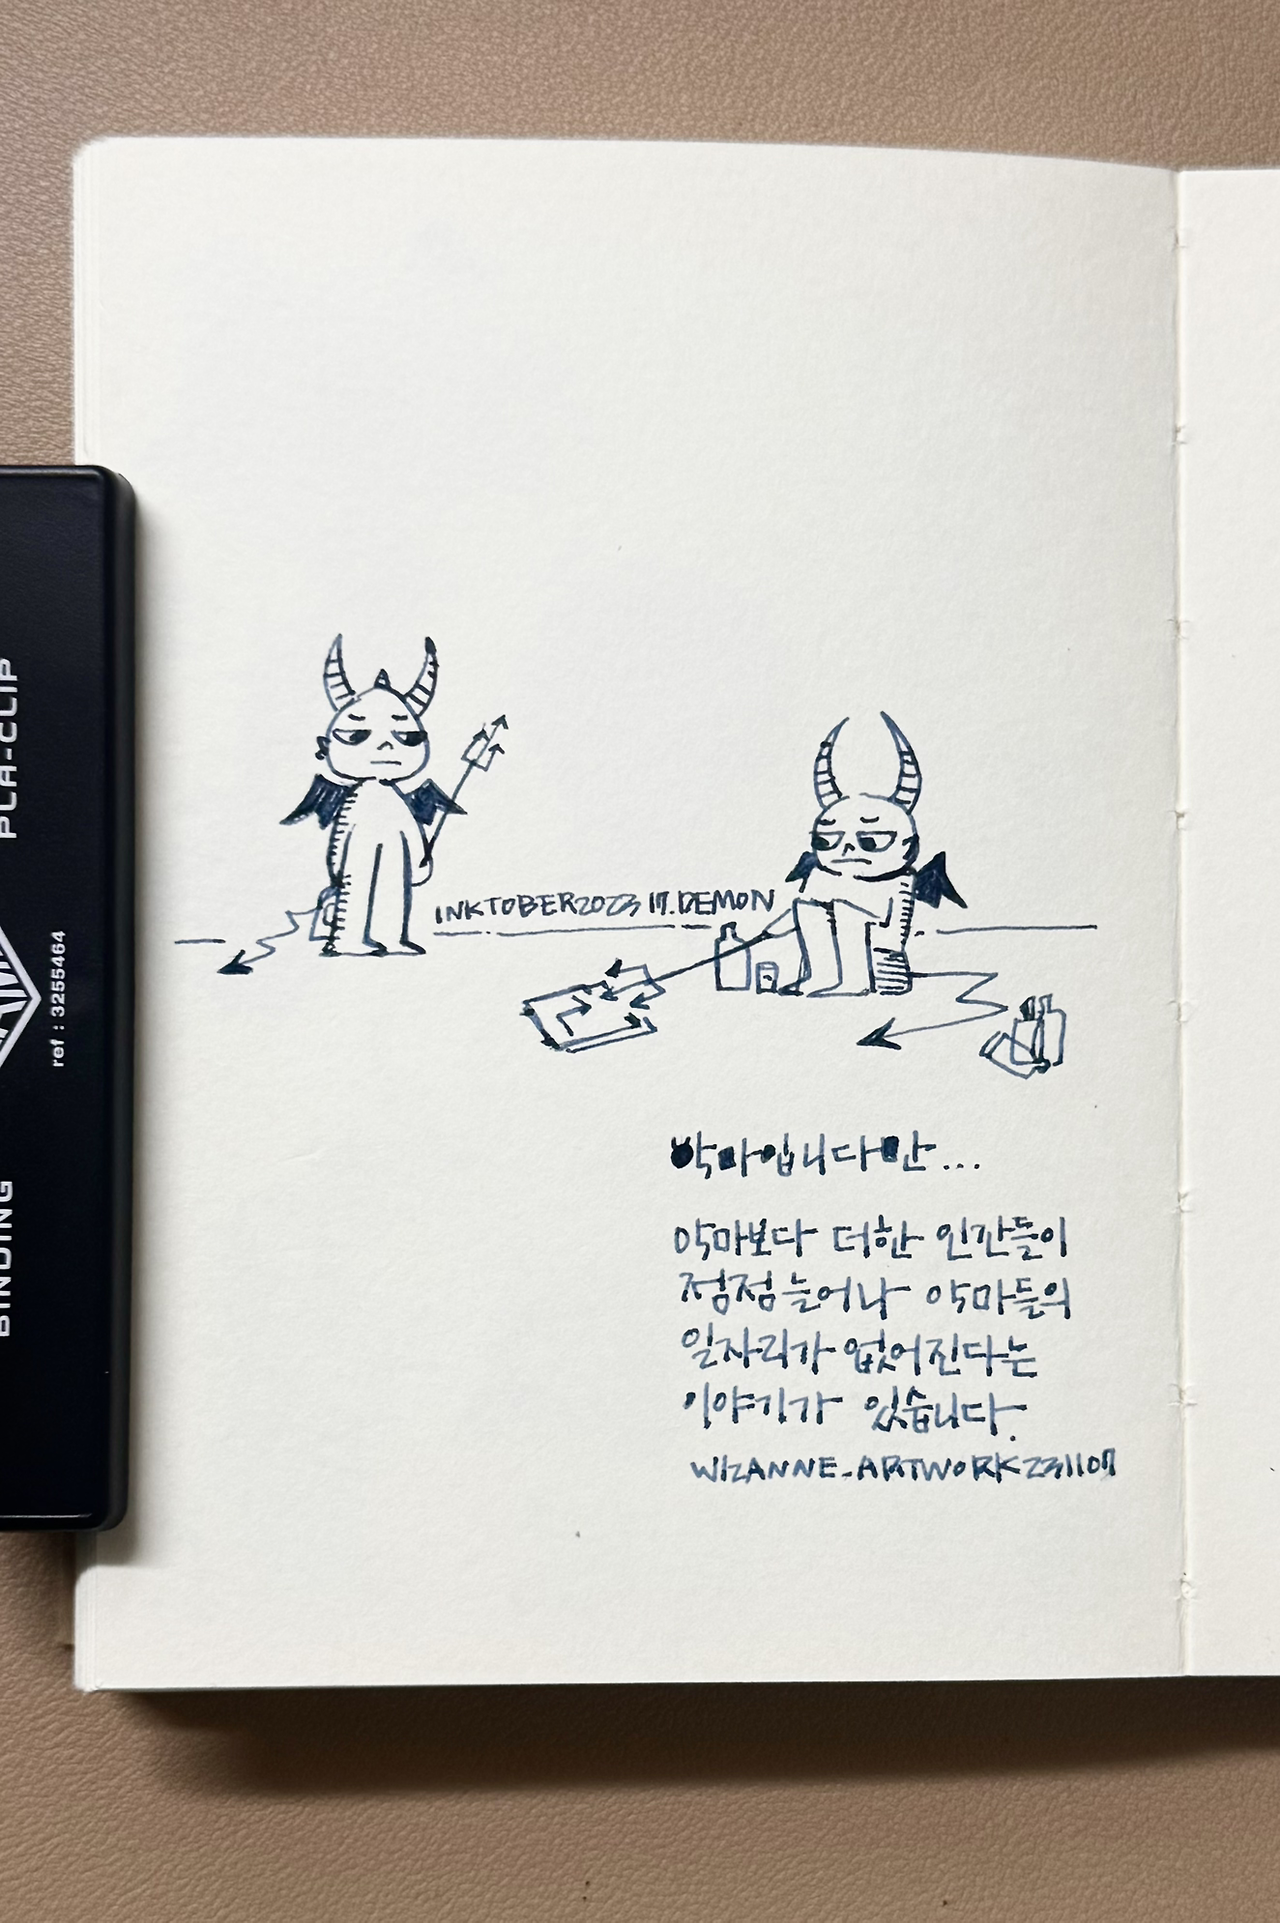 INKTOBER2023 17.DEMON
악마입니다만...
악마보다 더한 인간들이
점점 늘어나 악마들의
일자리가 없어진다는
이야기가 있습니다.
WIZANNE_ARTWORK231107
PLA-CLIP
BINDING
ref : 3255464